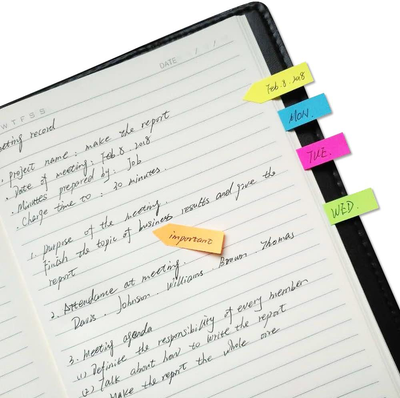 W T F S S
DATE / /
eeting record
. Project name : make the report
. Date of meeting : Feb. 8. 2018
. Minutes prepared by : Job
. Change time to : 30 minutes.
1. Purpose of the meeting
Finish the topic of business results and give the
report
2. Attendance at meeting.
Davis . Johnson Williams Brown Thomas
3. Meeting agenda
(1) Definite the responsibility of every member
(2) Talk about how to write the report
Make the report the whole one
important
Feb. 8. 2018
MON.
TUE.
WED.